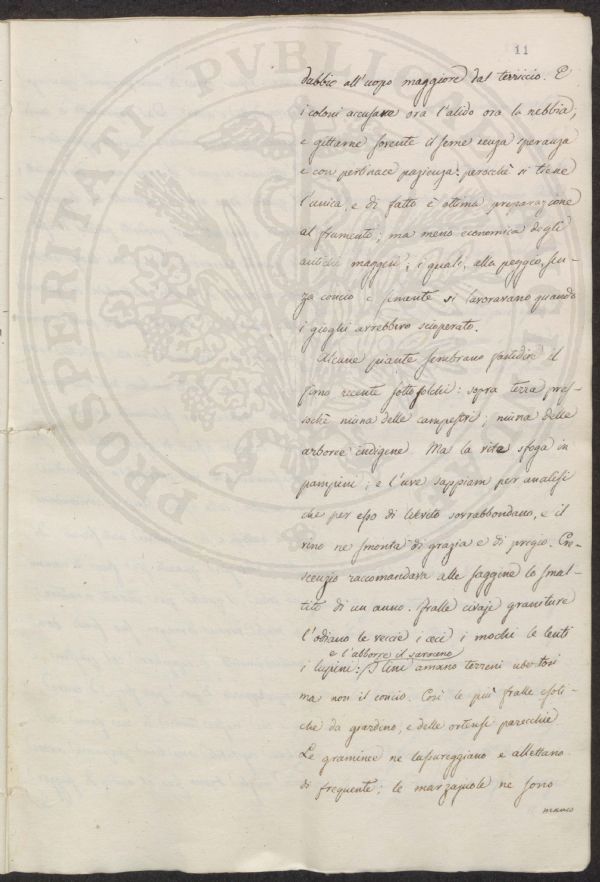 11
dabbie all'uopo maggiore dal terriccio. E
i coloni accusare ora l'alido ora la nebbia;
e gittarne sovente il seme senza speranza
e con pertinace pazienza: perocchè si tiene
l'unica, e di fatto è ottima preparazione
al frumento; ma meno economica degli
antichi maggesi, i quali, alla peggio, sen-
za concio e semente si lavoravano quando
i gioghi avrebbero scioperato.
Alcune piante sembrano fastidire il
fimo recente sotto soldo: sopra terra pres-
sochè niuna delle campestri; niuna delle
arboree indigene. Ma la vite sfoga in
pampini; e l'uve sappiam per analisi
che per esso di lievito sovrabbondano, e il
vino ne smonta di grazia e di pregio. Cre-
scenzio raccomandava alle saggine lo smal-
tito di un anno. Fralle civaje graniture
l'odiano le veccie i ceci i mochi le lenti
e l'abborre il saraceno
i lupini: I lini amano terreni ubertosi
ma non il concio. Così le più fralle esoti-
che da giardino, e delle ortensi parecchie
Le graminee ne lussureggiano e allettano
di frequente; le marzajuole ne sono
manco
PROSPERITATI PVBLICAE